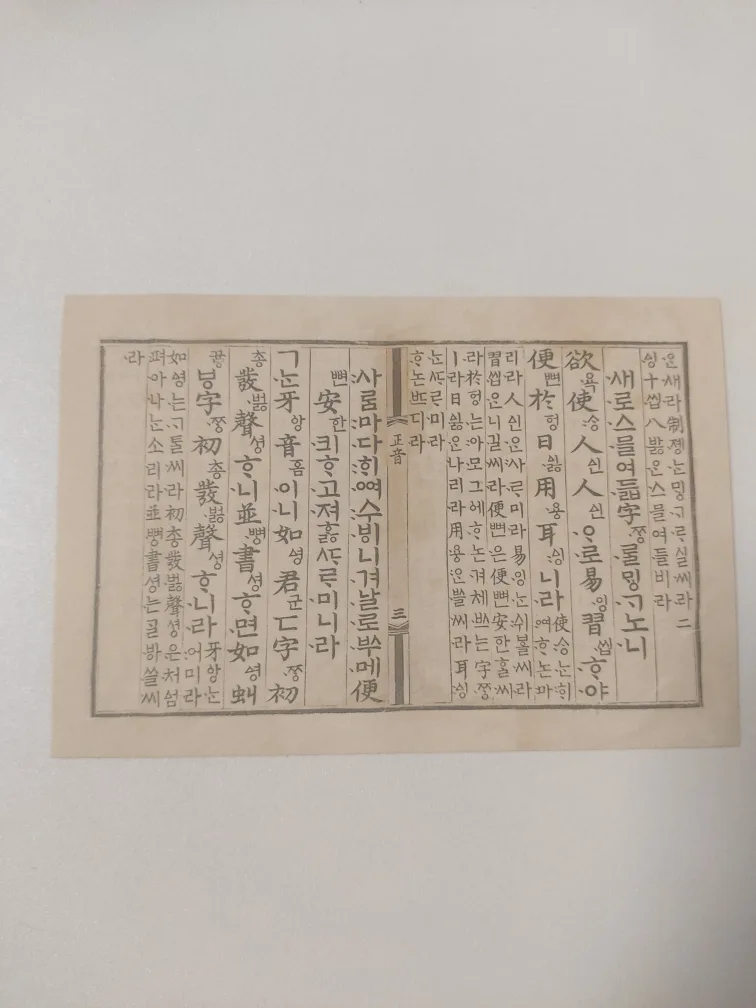 ᄋᆞᆫ새라制졩ᄂᆞᆫᄆᆡᇰᄀᆞᄅᆞ실씨라二
ᅀᅵᆼ十씹八바ᇙᄋᆞᆫ스믈여들비라
새로스믈여듧字ᄍᆞᆼᄅᆞᆯᄆᆡᇰᄀᆞ노니
欲욕使ᄉᆞᆼ人ᅀᅵᆫ人ᅀᅵᆫᄋᆞ로易잉習씹ᄒᆞ야
便뼌於ᅙᅥᆼ日ᅀᅵᇙ用용耳ᅀᅵᆼ니라
使ᄉᆞᆼᄂᆞᆫᄒᆡ
여ᄒᆞ논마
리라人ᅀᅵᆫᄋᆞᆫ사ᄅᆞ미라易잉ᄂᆞᆫ쉬ᄫᅳᆯ씨라
習씹은니길씨라便뼌은便뼌安한ᄒᆞᆯ씨
라於ᅙᅥᆼ는아모그ᅌᅦᄒᆞ논겨체ᄡᅳ는字ᄍᆞᆼ
ㅣ라日ᅀᅵᇙ은나리라用용ᄋᆞᆫᄡᅳᆯ씨라耳ᅀᅵᆼ
ᄂᆞᆫᄯᆞᄅᆞ미라
ᄒᆞ논ᄠᅳ디라
正音
三
사ᄅᆞᆷ마다ᄒᆡᅇᅧ수ᄫᅵ니겨날로ᄡᅮ메便
뼌安한킈ᄒᆞ고져ᄒᆞᇙᄯᆞᄅᆞ미니라
ㄱᄂᆞᆫ牙ᅌᅡᆼ音ᅙᅳᆷ이니如ᅀᅧᆼ君군ㄷ字ᄍᆞᆼ初
총發벓聲셩ᄒᆞ니並뼝書셩ᄒᆞ면如ᅀᅧᆼ虯
끃ㅸ字ᄍᆞᆼ初총發벓聲셩ᄒᆞ니라
牙ᅌᅡᆼᄂᆞᆫ
어미라
如ᅀᅧᆼ는ᄀᆞᄐᆞᆯ씨라初총發벓聲셩은처ᅀᅥᆷ
펴아나ᄂᆞᆫ소리라並뼝書셩는ᄀᆞᆯᄫᅡ쓸씨
라